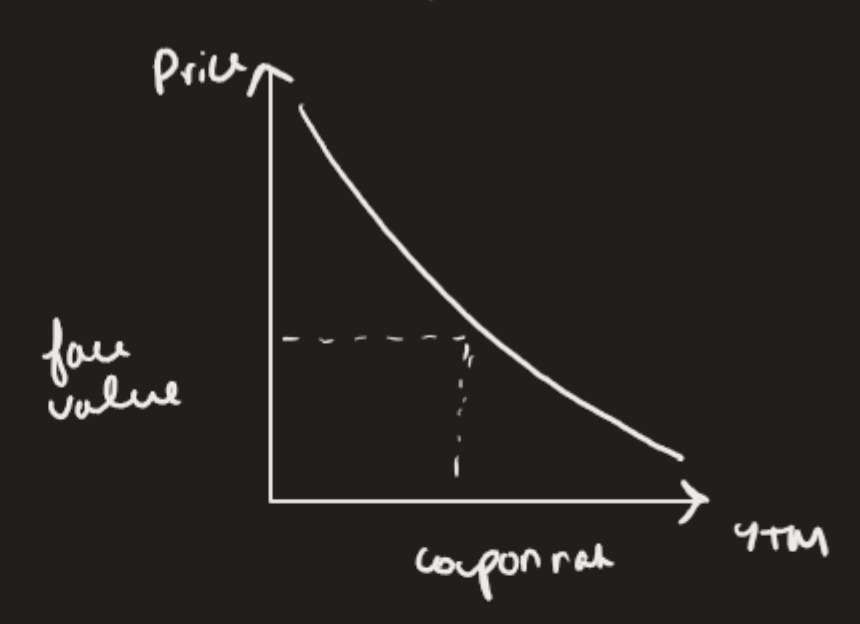 Price
face
value
coupon rate
YTM